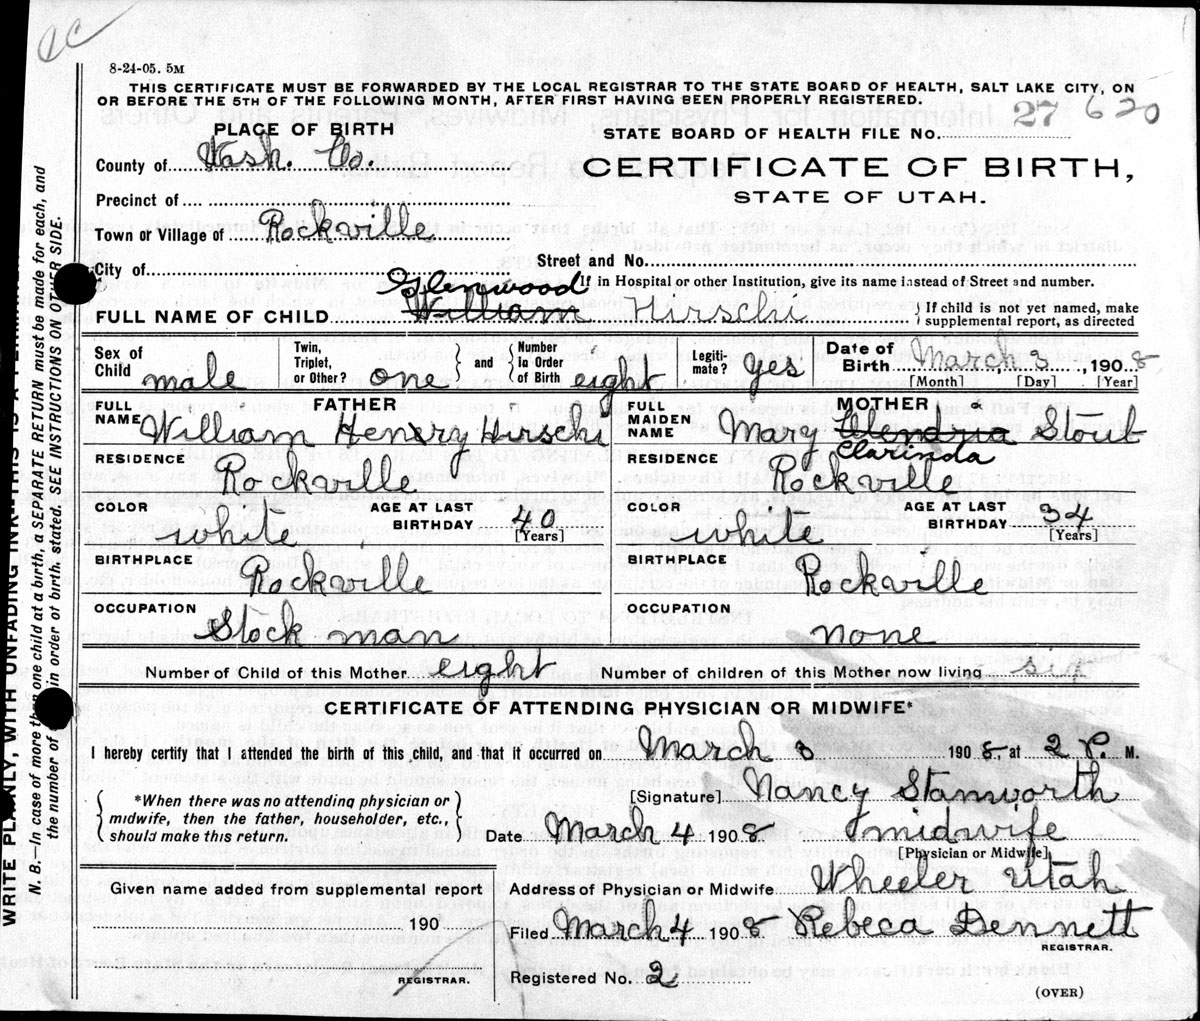 8-24-05. 5M
THIS CERTIFICATE MUST BE FORWARDED BY THE LOCAL REGISTRAR TO THE STATE BOARD OF HEALTH, SALT LAKE CITY, ON
OR BEFORE THE 5TH OF THE FOLLOWING MONTH, AFTER FIRST HAVING BEEN PROPERLY REGISTERED.
PLACE OF BIRTH
STATE BOARD OF HEALTH FILE NO. 27 620
County of Wash. Co.
CERTIFICATE OF BIRTH,
STATE OF UTAH.
Precinct of
Town or Village of Rockville
City of
Street and No.
If in Hospital or other Institution, give its name instead of Street and number.
Glenwood
FULL NAME OF CHILD William Hirschi
If child is not yet named, make
supplemental report, as directed
Sex of Child male
Twin, Triplet, or Other? one and Number In Order of Birth eight
Legitimate? yes
Date of Birth March 3, 1908
[Month] [Day] [Year]
FATHER
FULL NAME William Henry Hirschi
RESIDENCE Rockville
COLOR white
AGE AT LAST BIRTHDAY 40 [Years]
BIRTHPLACE Rockville
OCCUPATION Stock man
MOTHER
FULL MAIDEN NAME Mary Stout
Clarinda
RESIDENCE Rockville
COLOR white
AGE AT LAST BIRTHDAY 34 [Years]
BIRTHPLACE Rockville
OCCUPATION none
Number of Child of this Mother eight
Number of children of this Mother now living six
CERTIFICATE OF ATTENDING PHYSICIAN OR MIDWIFE*
I hereby certify that I attended the birth of this child, and that it occurred on March 3 1908 at 2 P. M.
*When there was no attending physician or
midwife, then the father, householder, etc.,
should make this return.
[Signature] Nancy Stanworth
Date March 4 1908 midwife
[Physician or Midwife]
Given name added from supplemental report
190
REGISTRAR.
Address of Physician or Midwife Wheeler Utah
Filed March 4 1908 Rebeca Dennett
REGISTRAR.
Registered No. 2
(OVER)
N. B.—In case of more than one child at a birth, a SEPARATE RETURN must be made for each, and
the number of in order of birth, stated. SEE INSTRUCTIONS ON OTHER SIDE.
WRITE PLAINLY, WITH UNFADING INK—THIS IS A